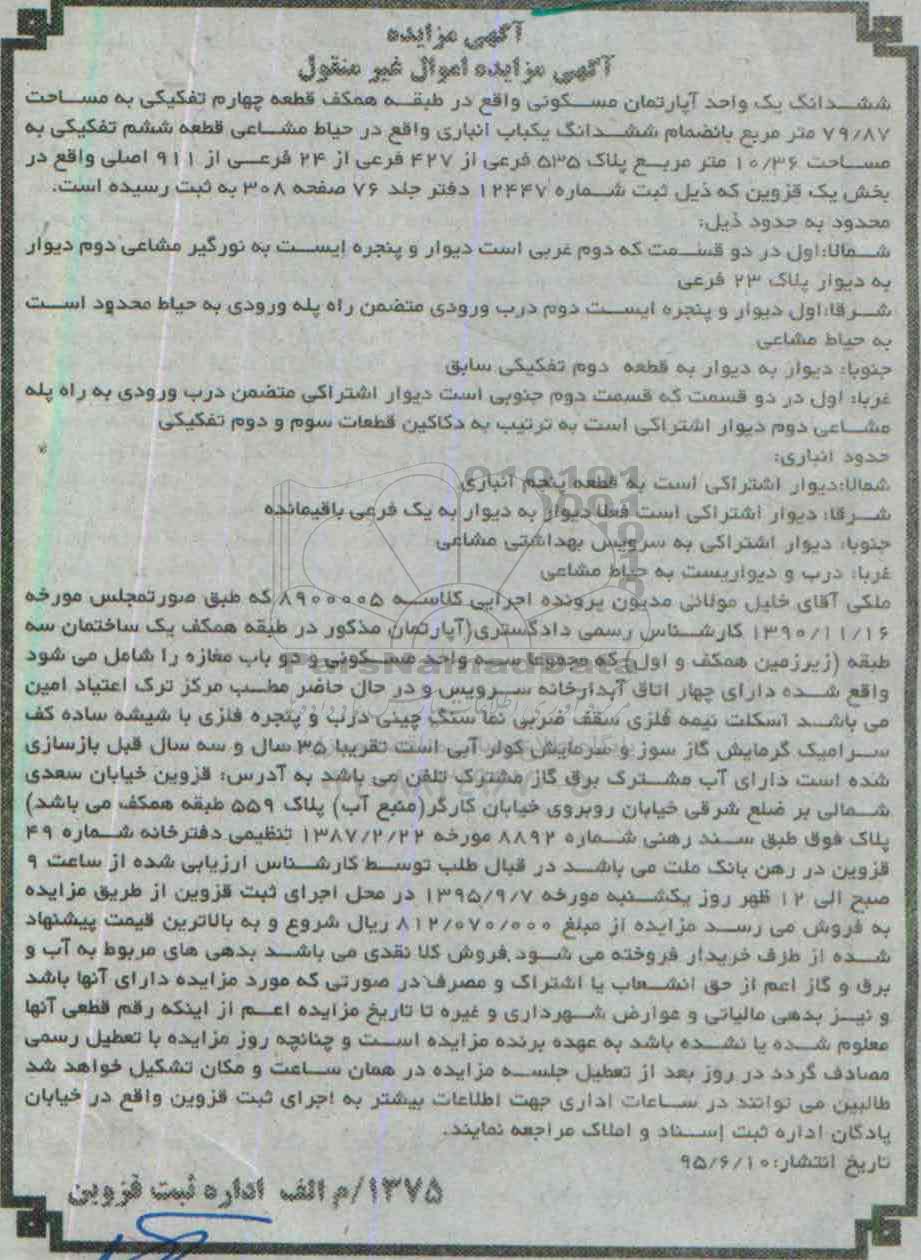 آگهی مزایده
آگهی مزایده اموال غیر منقول
ششدانگ یک واحد آپارتمان مسکونی واقع در طبقه همکف قطعه چهارم تفکیکی به مساحت
۷۹/۸۷ متر مربع بانضمام ششدانگ یکباب انباری واقع در حیاط مشاعی قطعه ششم تفکیکی به
مساحت ۱۰/۳۶ متر مربع پلاک ۵۳۵ فرعی از ۴۲۷ فرعی از ۲۴ فرعی از ۹۱۱ اصلی واقع در
بخش یک قزوین که ذیل ثبت شماره ۱۲۴۴۷ دفتر جلد ۷۶ صفحه ۳۰۸ به ثبت رسیده است.
محدود به حدود ذیل:
شمالا:اول در دو قسمت که دوم غربی است دیوار و پنجره ایست به نورگیر مشاعی دوم دیوار
به دیوار پلاک ۲۳ فرعی
شرقا:اول دیوار و پنجره ایست دوم درب ورودی متضمن راه پله ورودی به حیاط محدود است
به حیاط مشاعی
جنوبا: دیوار به دیوار به قطعه دوم تفکیکی سابق
غربا: اول در دو قسمت که قسمت دوم جنوبی است دیوار اشتراکی متضمن درب ورودی به راه پله
مشاعی دوم دیوار اشتراکی است به ترتیب به دکاکین قطعات سوم و دوم تفکیکی
حدود انباری:
شمالا:دیوار اشتراکی است به قطعه پنجم انباری
شرقا: دیوار اشتراکی است فعلا دیوار به دیوار به یک فرعی باقیمانده
جنوبا: دیوار اشتراکی به سرویس بهداشتی مشاعی
غربا: درب و دیواریست به حیاط مشاعی
ملکی آقای خلیل مولائی مدیون پرونده اجرایی کلاسه ۸۹۰۰۰۰۵ که طبق صورتمجلس مورخه
۱۳۹۰/۱۱/۱۶ کارشناس رسمی دادگستری(آپارتمان مذکور در طبقه همکف یک ساختمان سه
طبقه (زیرزمین همکف و اول) که مجموعا سه واحد مسکونی و دو باب مغازه را شامل می شود
واقع شده دارای چهار اتاق آبدارخانه سرویس و در حال حاضر مطب مرکز ترک اعتیاد امین
می باشد اسکلت نیمه فلزی سقف ضربی نما سنگ چینی درب و پنجره فلزی با شیشه ساده کف
سرامیک گرمایش گاز سوز و سرمایش کولر آبی است تقریبا ۳۵ سال و سه سال قبل بازسازی
شده است دارای آب مشترک برق گاز مشترک تلفن می باشد به آدرس: قزوین خیابان سعدی
شمالی بر ضلع شرقی خیابان روبروی خیابان کارگر(منبع آب) پلاک ۵۵۹ طبقه همکف می باشد)
پلاک فوق طبق سند رهنی شماره ۸۸۹۲ مورخه ۱۳۸۷/۲/۲۲ تنظیمی دفترخانه شماره ۴۹
قزوین در رهن بانک ملت می باشد در قبال طلب توسط کارشناس ارزیابی شده از ساعت ۹
صبح الی ۱۲ ظهر روز یکشنبه مورخه ۱۳۹۵/۹/۷ در محل اجرای ثبت قزوین از طریق مزایده
به فروش می رسد مزایده از مبلغ ۸۱۲/۰۷۰/۰۰۰ ریال شروع و به بالاترین قیمت پیشنهاد
شده از طرف خریدار فروخته می شود.فروش کلا نقدی می باشد بدهی های مربوط به آب و
برق و گاز اعم از حق انشعاب یا اشتراک و مصرف در صورتی که مورد مزایده دارای آنها باشد
و نیز بدهی مالیاتی و عوارض شهرداری و غیره تا تاریخ مزایده اعم از اینکه رقم قطعی آنها
معلوم شده یا نشده باشد به عهده برنده مزایده است و چنانچه روز مزایده با تعطیل رسمی
مصادف گردد در روز بعد از تعطیل جلسه مزایده در همان ساعت و مکان تشکیل خواهد شد
طالبین می توانند در ساعات اداری جهت اطلاعات بیشتر به اجرای ثبت قزوین واقع در خیابان
پادگان اداره ثبت اسناد و املاک مراجعه نمایند.
تاریخ انتشار:۹۵/۶/۱۰
۱۳۷۵/م الف اداره ثبت قزوین
ParsNamadData